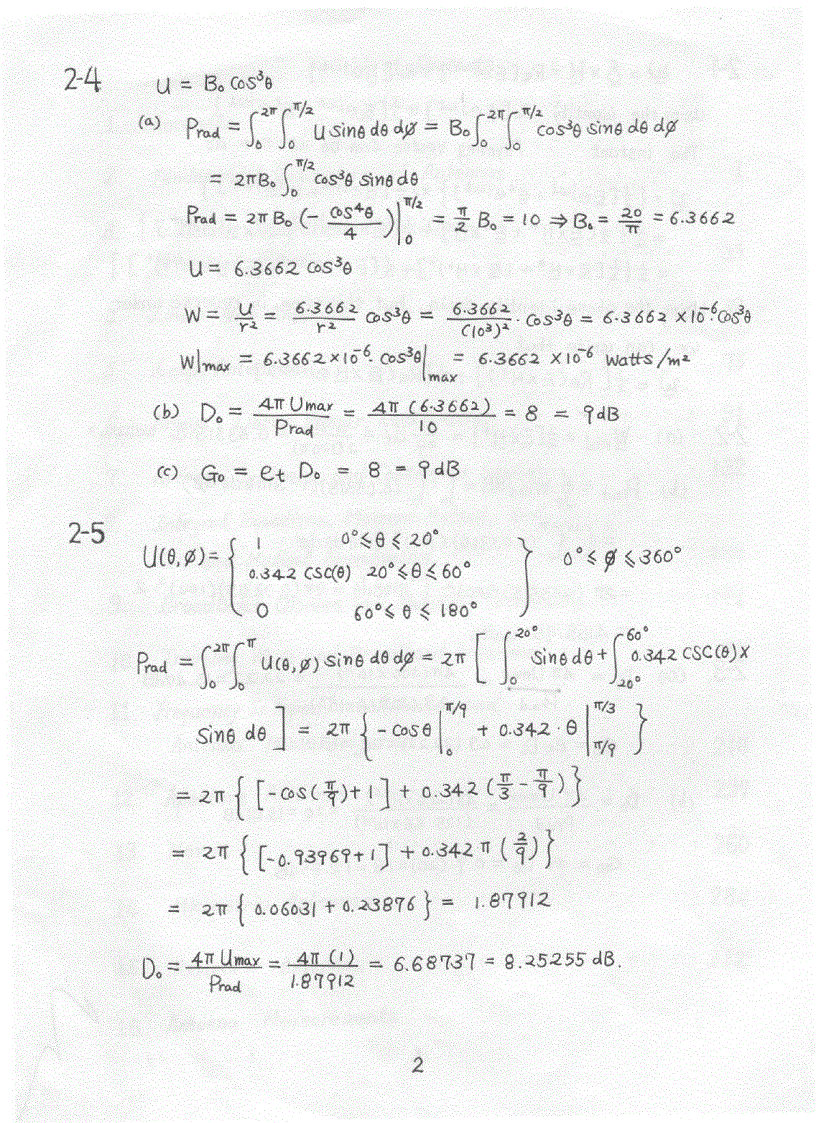 2-4 U = B₀ cos³θ
(a) Prad = ∫₀^2π ∫₀^π/2 U sinθ dθ dφ = B₀ ∫₀^2π ∫₀^π/2 cos³θ sinθ dθ dφ
= 2πB₀ ∫₀^π/2 cos³θ sinθ dθ
Prad = 2πB₀ (- cos⁴θ/4)|₀^π/2 = π/2 B₀ = 10 ⇒ B₀ = 20/π = 6.3662
U = 6.3662 cos³θ
W = U/r² = 6.3662/r² cos³θ = 6.3662/(10³)² · cos³θ = 6.3662 × 10⁻⁶ · cos³θ
W|max = 6.3662 × 10⁻⁶ · cos³θ|max = 6.3662 × 10⁻⁶ Watts/m²
(b) D₀ = 4π Umax/Prad = 4π (6.3662)/10 = 8 = 9 dB
(c) G₀ = et D₀ = 8 = 9 dB
2-5 U(θ,φ) = { 1 0° ≤ θ ≤ 20°
0.342 CSC(θ) 20° ≤ θ ≤ 60° } 0° ≤ φ ≤ 360°
0 60° ≤ θ ≤ 180°
Prad = ∫₀^2π ∫₀^π U(θ,φ) sinθ dθ dφ = 2π [ ∫₀^20° sinθ dθ + ∫20°^60° 0.342 CSC(θ) ×
sinθ dθ ] = 2π { - cosθ |₀^π/9 + 0.342 · θ |π/9^π/3 }
= 2π { [- cos(π/9) + 1] + 0.342 (π/3 - π/9) }
= 2π { [-0.93969 + 1] + 0.342 π (2/9) }
= 2π { 0.06031 + 0.23876 } = 1.87912
D₀ = 4π Umax/Prad = 4π (1)/1.87912 = 6.68737 = 8.25255 dB.
2